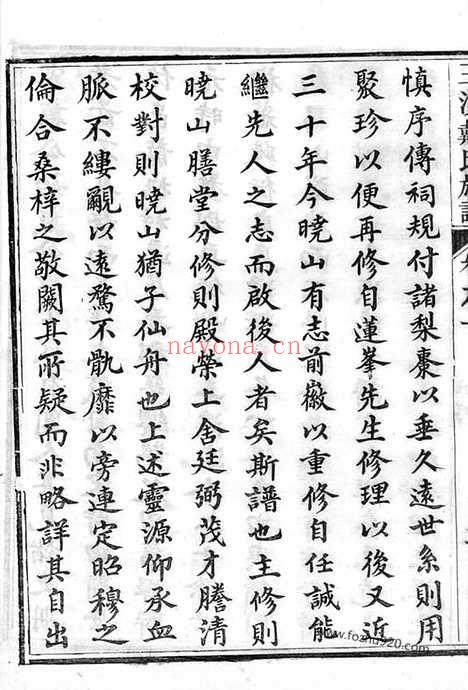 慎序傳祠規付諸梨棗以垂久遠世系則用
聚珍以便再修自蓮峯先生修理以後又近
三十年今曉山有志前徽以重修自任誠能
繼先人之志而啟後人者矣斯譜也主修則
曉山膳堂分修則殿榮上舍廷弼茂才謄清
校對則曉山猶子仙舟也上述靈源仰承血
脈不縷覼以遠騖不骫靡以旁連定昭穆之
倫合桑梓之敬闕其所疑而非略詳其自出
nayona.cn
www.fozhu920.com